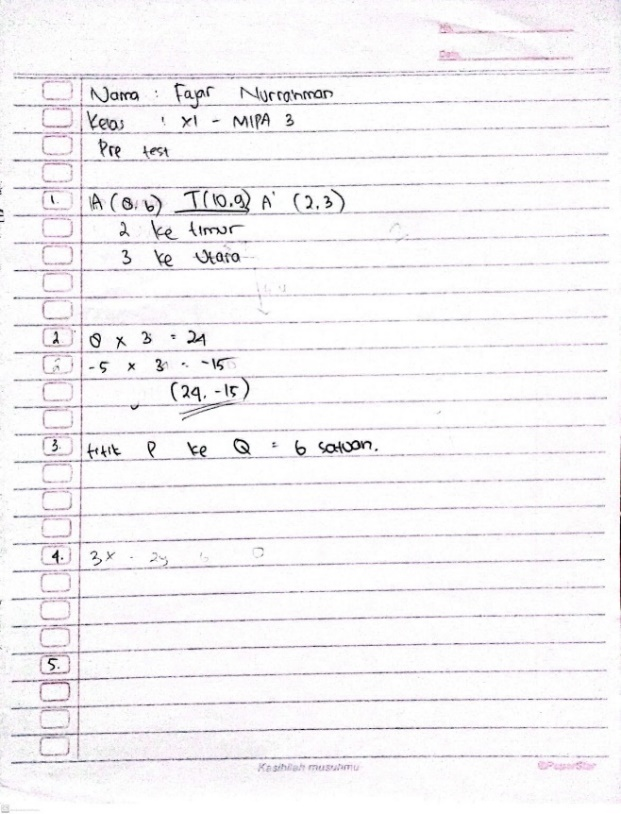 No.
Date
Nama : Fajar Nurrahman
Kelas : XI - MIPA 3
Pre test
1. A (8.6) T(10.9) A' (2.3)
2 ke timur
3 ke Utara
2 8 x 3 = 24
-5 x 3 = -15
(24. -15)
3. titik P ke Q = 6 satuan.
4. 3x - 2y
5.
Kasihilah musuhmu
PaperStar